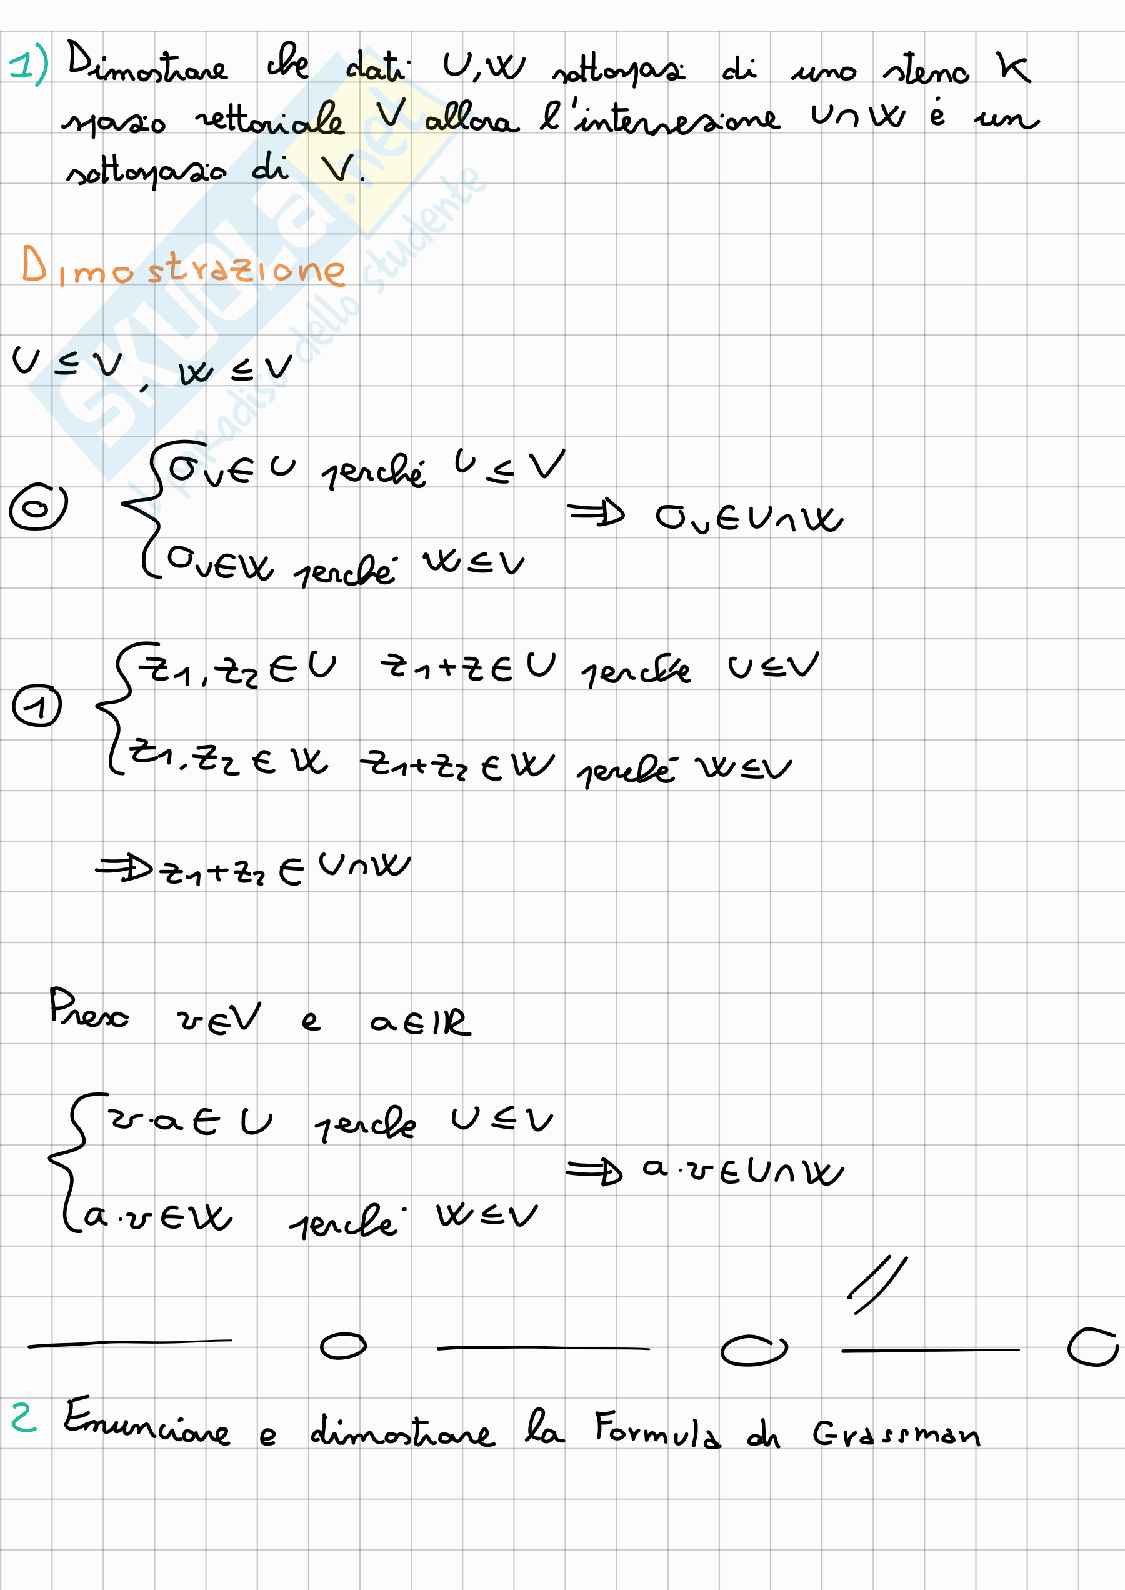 1) Dimostrare che dati U,W sottospazi di uno stesso K
spazio vettoriale V allora l'intersezione U∩W é un
sottospazio di V.
SKUOLA.net
il paradiso dello studente
Dimostrazione
U ≤ V, W ≤ V
⓪ { 0v∈U perché U ≤ V
⇒ 0v∈U∩W
0v∈W perché W≤V
① { z1,z2∈U z1+z∈U perche U≤V
z1,z2∈W z1+z2∈W perché W≤V
⇒ z1+z2∈U∩W
Preso v∈V e a∈ℝ
{ v·a∈U perche U≤V
⇒ a·v∈U∩W
a·v∈W perché W≤V
//
2 Enunciare e dimostrare la Formula di Grassman